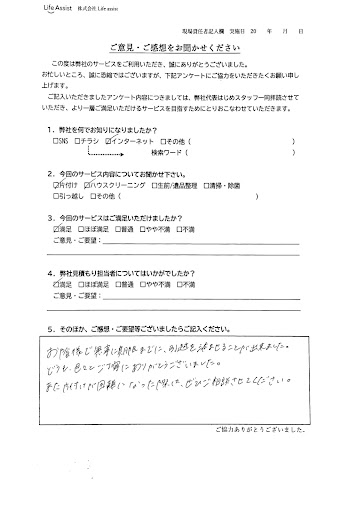 Life Assist 株式会社 Life assist
現場責任者記入欄 実施日 20 年 月 日
ご意見・ご感想をお聞かせください
この度は弊社のサービスをご利用いただき、誠にありがとうございました。
お忙しいところ、誠に恐縮ではございますが、下記アンケートにご協力をいただきたくお願い申し
上げます。
ご記入いただきましたアンケート内容につきましては、弊社代表はじめスタッフ一同拝読させていただき、より一層ご満足いただけるサービスを目指すためにとりおこなわせていただきます。
1.弊社を何でお知りになりましたか?
□SNS □チラシ ☑インターネット □その他( )
検索ワード( )
2.今回のサービス内容についてお聞かせ下さい。
☑片付け ☑ハウスクリーニング □生前/遺品整理 □清掃・除菌
□引っ越し □その他( )
3.今回のサービスはご満足いただけましたか?
☑満足 □ほぼ満足 □普通 □やや不満 □不満
ご意見・ご要望:
4.弊社見積もり担当者についてはいかがでしたか?
☑満足 □ほぼ満足 □普通 □やや不満 □不満
ご意見・ご要望:
5.そのほか、ご感想・ご要望等ございましたらご記入ください。
お陰様で無事に期限までに、引越を済ませることが出来ました。
どうも、色々とご丁寧にありがとうございました。
また片付けが困難になった際は、ぜひご相談させてください。
ご協力ありがとうございました。